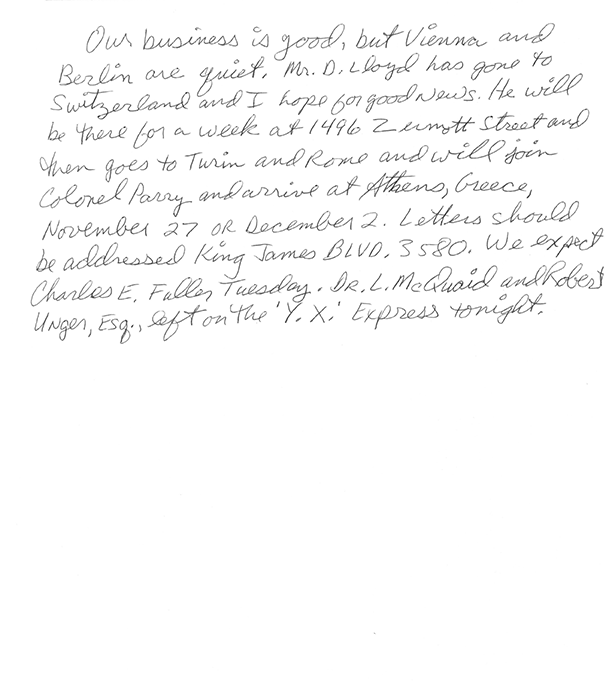 Our business is good, but Vienna and
Berlin are quiet. Mr. D. Lloyd has gone to
Switzerland and I hope for good news. He will
be there for a week at 1496 Zermott Street and
then goes to Turin and Rome and will join
Colonel Parry and arrive at Athens, Greece,
November 27 or December 2. Letters should
be addressed King James BLVD. 3580. We expect
Charles E. Fuller Tuesday. Dr. L. McQuaid and Robert
Unger, Esq., left on the 'Y. X.' Express tonight.